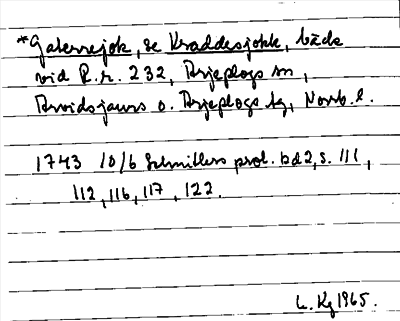 *Gaterrejok, se Kraddesjokk, bäck
vid R.r. 232, Arjeplogs sn,
Arvidsjaurs o. Arjeplogs tg, Norrb. l.
1743 10/6 Schnitlers prot. bd 2, s. 111,
112, 116, 117, 122.
L. Kg 1965.